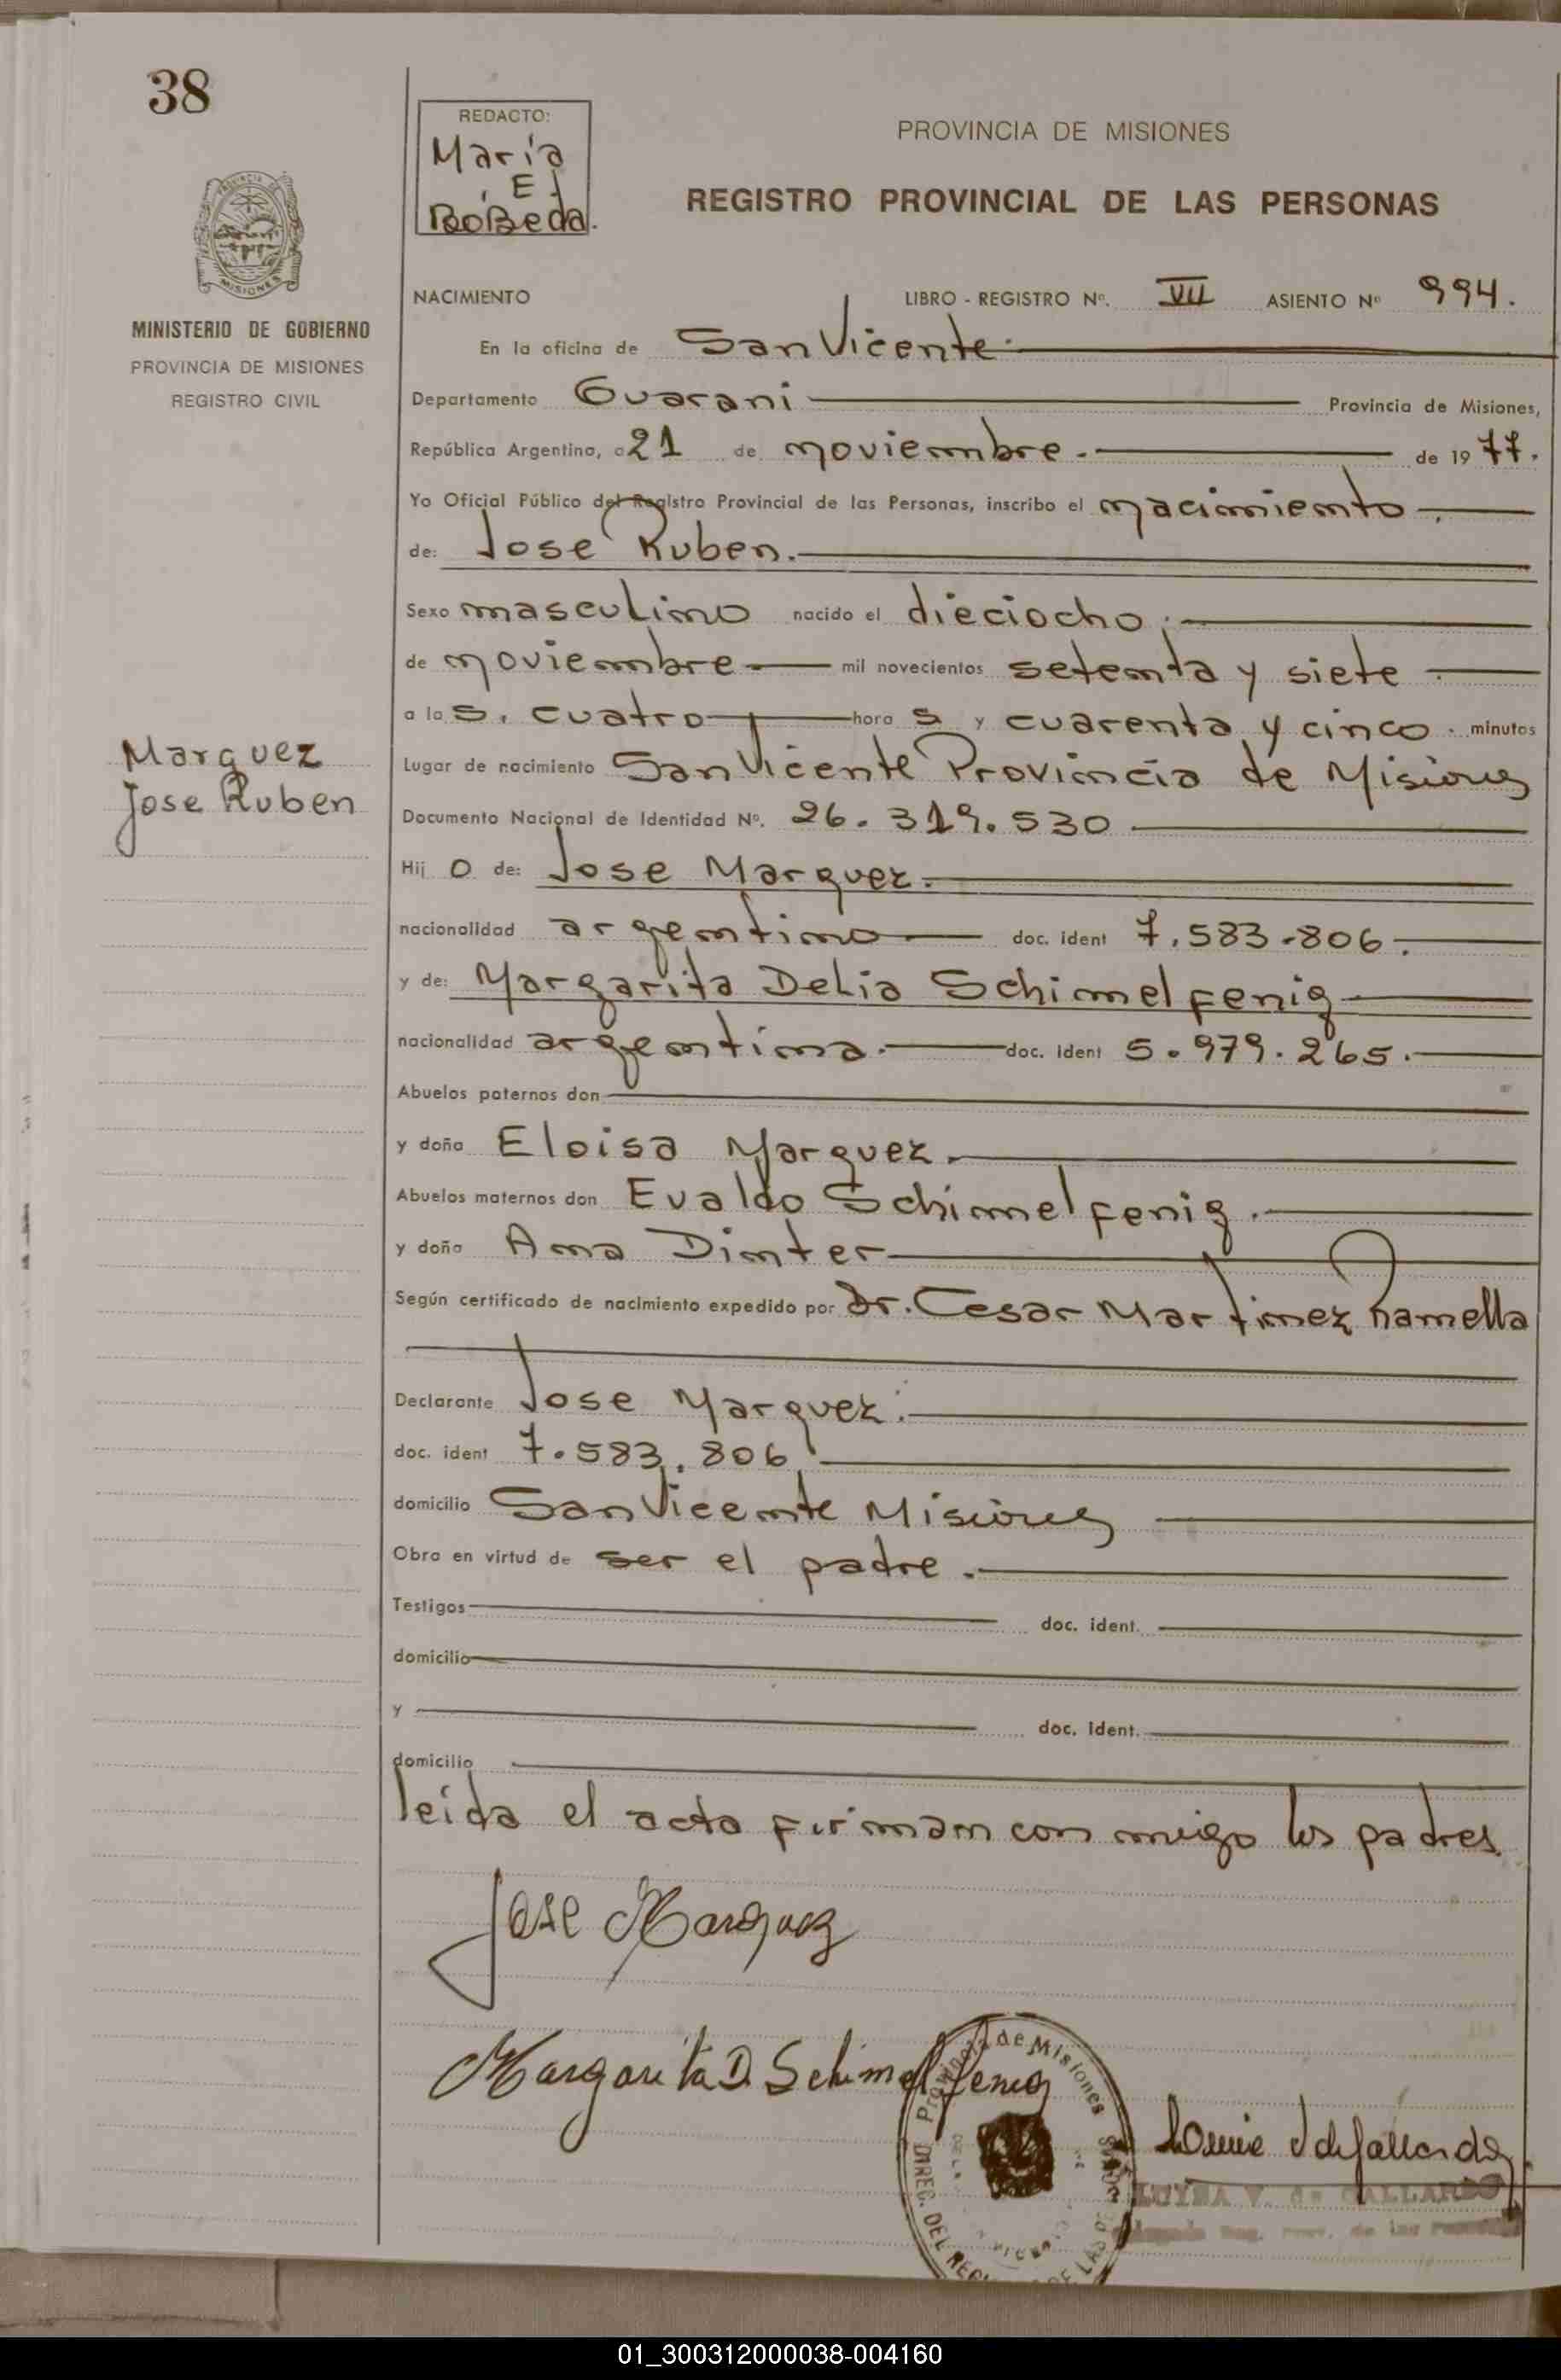 38
REDACTO:
María
E.
BoBeda.
PROVINCIA DE MISIONES
REGISTRO PROVINCIAL DE LAS PERSONAS
PROVINCIA DE
MISIONES
MINISTERIO DE GOBIERNO
PROVINCIA DE MISIONES
REGISTRO CIVIL
NACIMIENTO LIBRO - REGISTRO Nº. VII ASIENTO Nº 994.
En la oficina de San Vicente.
Departamento Guarani Provincia de Misiones,
República Argentina, a 21 de noviembre. de 1977.
Yo Oficial Público del Registro Provincial de las Personas, inscribo el nacimiento.
de: Jose Ruben.
Sexo masculino nacido el dieciocho.
de noviembre mil novecientos setenta y siete
a las. cuatro horas y cuarenta y cinco. minutos
Marquez
Jose Ruben
Lugar de nacimiento San Vicente Provincia de Misiones
Documento Nacional de Identidad Nº. 26.319.530
Hijo de: Jose Marquez.
nacionalidad argentino doc. ident 7.583.806.
y de: Margarita Delia Schimelfenig
nacionalidad argentina. doc. ident 5.979.265.
Abuelos paternos don
y doña Eloisa Marquez.
Abuelos maternos don Evaldo Schimelfenig.
y doña Ana Dinter
Según certificado de nacimiento expedido por Dr. Cesar Martinez Ramella
Declarante Jose Marquez.
doc. ident 7.583.806.
domicilio San Vicente Misiones
Obra en virtud de ser el padre.
Testigos doc. ident.
domicilio
y doc. ident.
domicilio
leida el acta firman con migo los padres.
Jose Marquez
Margarita D. Schimelfenig
Provincia de Misiones
DIREC. DEL
LUYSA V. de GALLARDO
Reg. Prov. de las
01_300312000038-004160